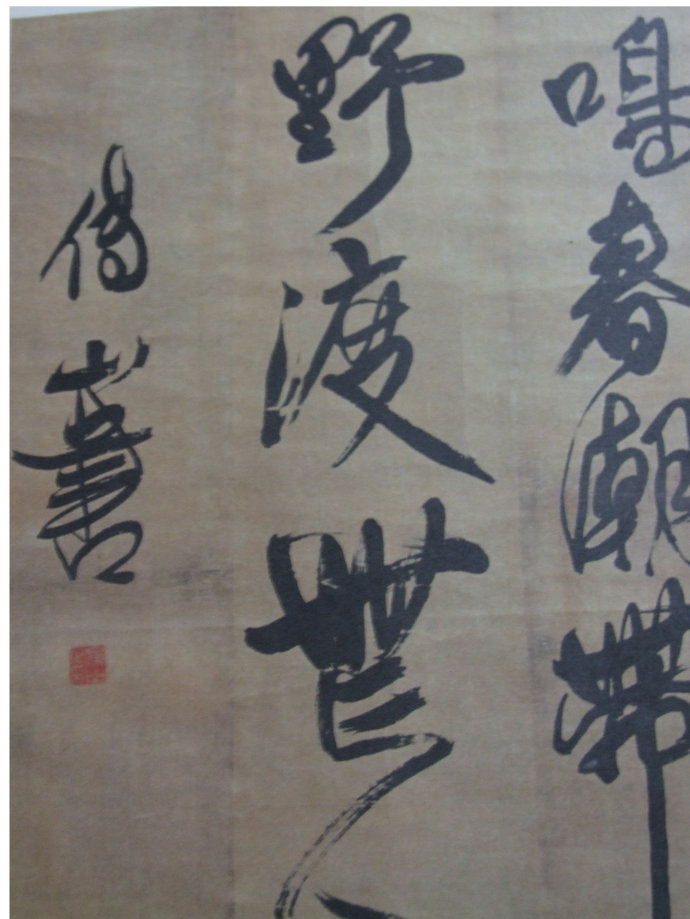 鳴春潮帶
野渡無人
傅山書